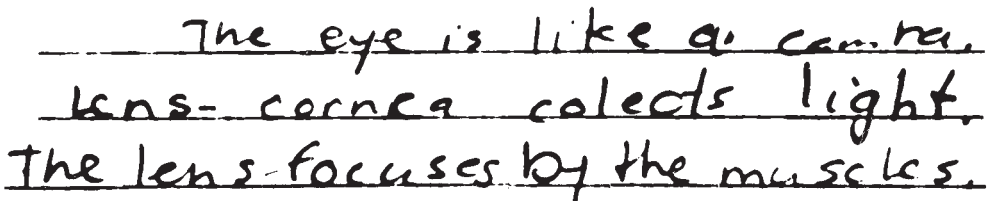 The eye is like a camra.
lens- cornea colects light.
The lens focuses by the muscles.